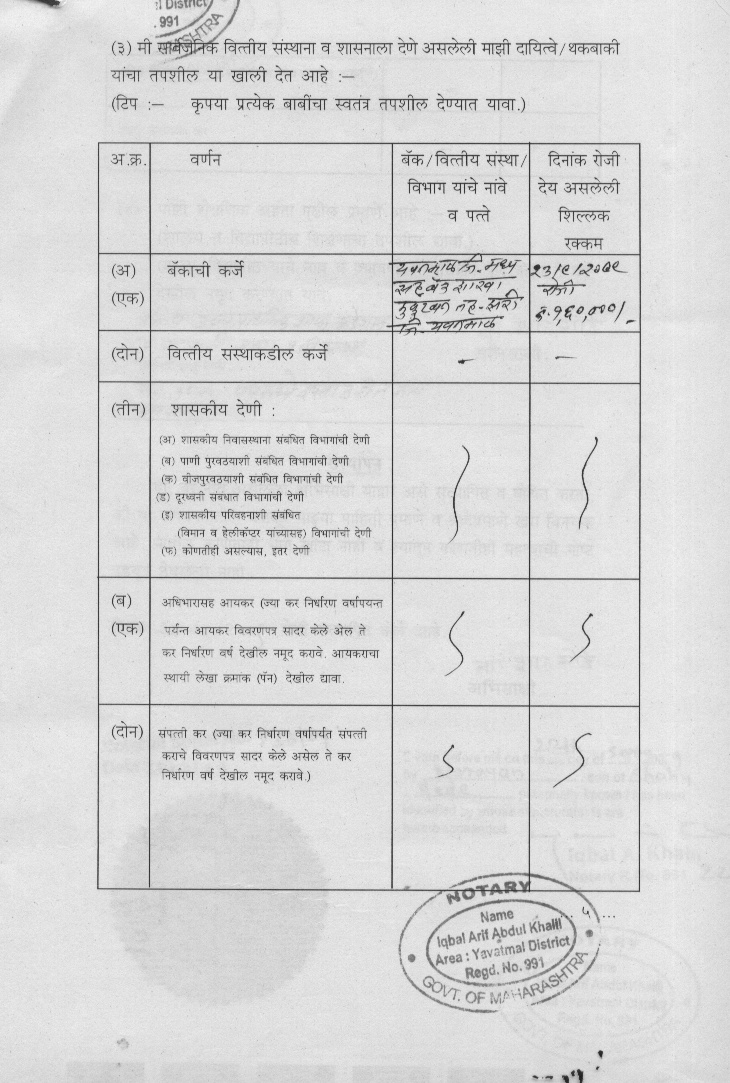 l District
. 991
(३) मी सार्वजनिक वित्तीय संस्थाना व शासनाला देणे असलेली माझी दायित्वे/थकबाकी
यांचा तपशील या खाली देत आहे :–
(टिप :– कृपया प्रत्येक बाबींचा स्वतंत्र तपशील देण्यात यावा.)
अ.क्र. वर्णन बॅक/वित्तीय संस्था/ दिनांक रोजी
विभाग यांचे नांवे देय असलेली
व पत्ते शिल्लक
रक्कम
(अ) बॅकाची कर्जे यवतमाळ जि. मध्य २३/९/२००९
(एक) सह. बँक शाखा रोजी
मुकुटबन तह-झरी रु.१६०,०००/-
जि. यवतमाळ
(दोन) वित्तीय संस्थाकडील कर्जे - —
(तीन) शासकीय देणी :
(अ) शासकीय निवासस्थाना संबंधित विभागांची देणी
(ब) पाणी पुरवठयाशी संबंधित विभागांची देणी
(क) वीजपुरवठयाशी संबंधित विभागांची देणी
(ड) दूरध्वनी संबंधात विभागांची देणी
(इ) शासकीय परिवहनाशी संबंधित
(विमान व हेलीकॅप्टर यांच्यासह) विभागांची देणी
(फ) कोणतीही असल्यास, इतर देणी
(ब) अधिभारासह आयकर (ज्या कर निर्धारण वर्षापयन्त
(एक) पर्यन्त आयकर विवरणपत्र सादर केले अेल ते
कर निर्धारण वर्ष देखील नमूद करावे. आयकराचा
स्थायी लेखा क्रमाांक (पॅन) देखील द्यावा.
(दोन) संपत्ती कर (ज्या कर निर्धारण वर्षापर्यत संपत्ती
कराचे विवरणपत्र सादर केले असेल ते कर
निर्धारण वर्ष देखील नमूद करावे.)
... ५ ...
NOTARY
Name
Iqbal Arif Abdul Khalil
Area : Yavatmal District
Regd. No. 991
GOVT. OF MAHARASHTRA